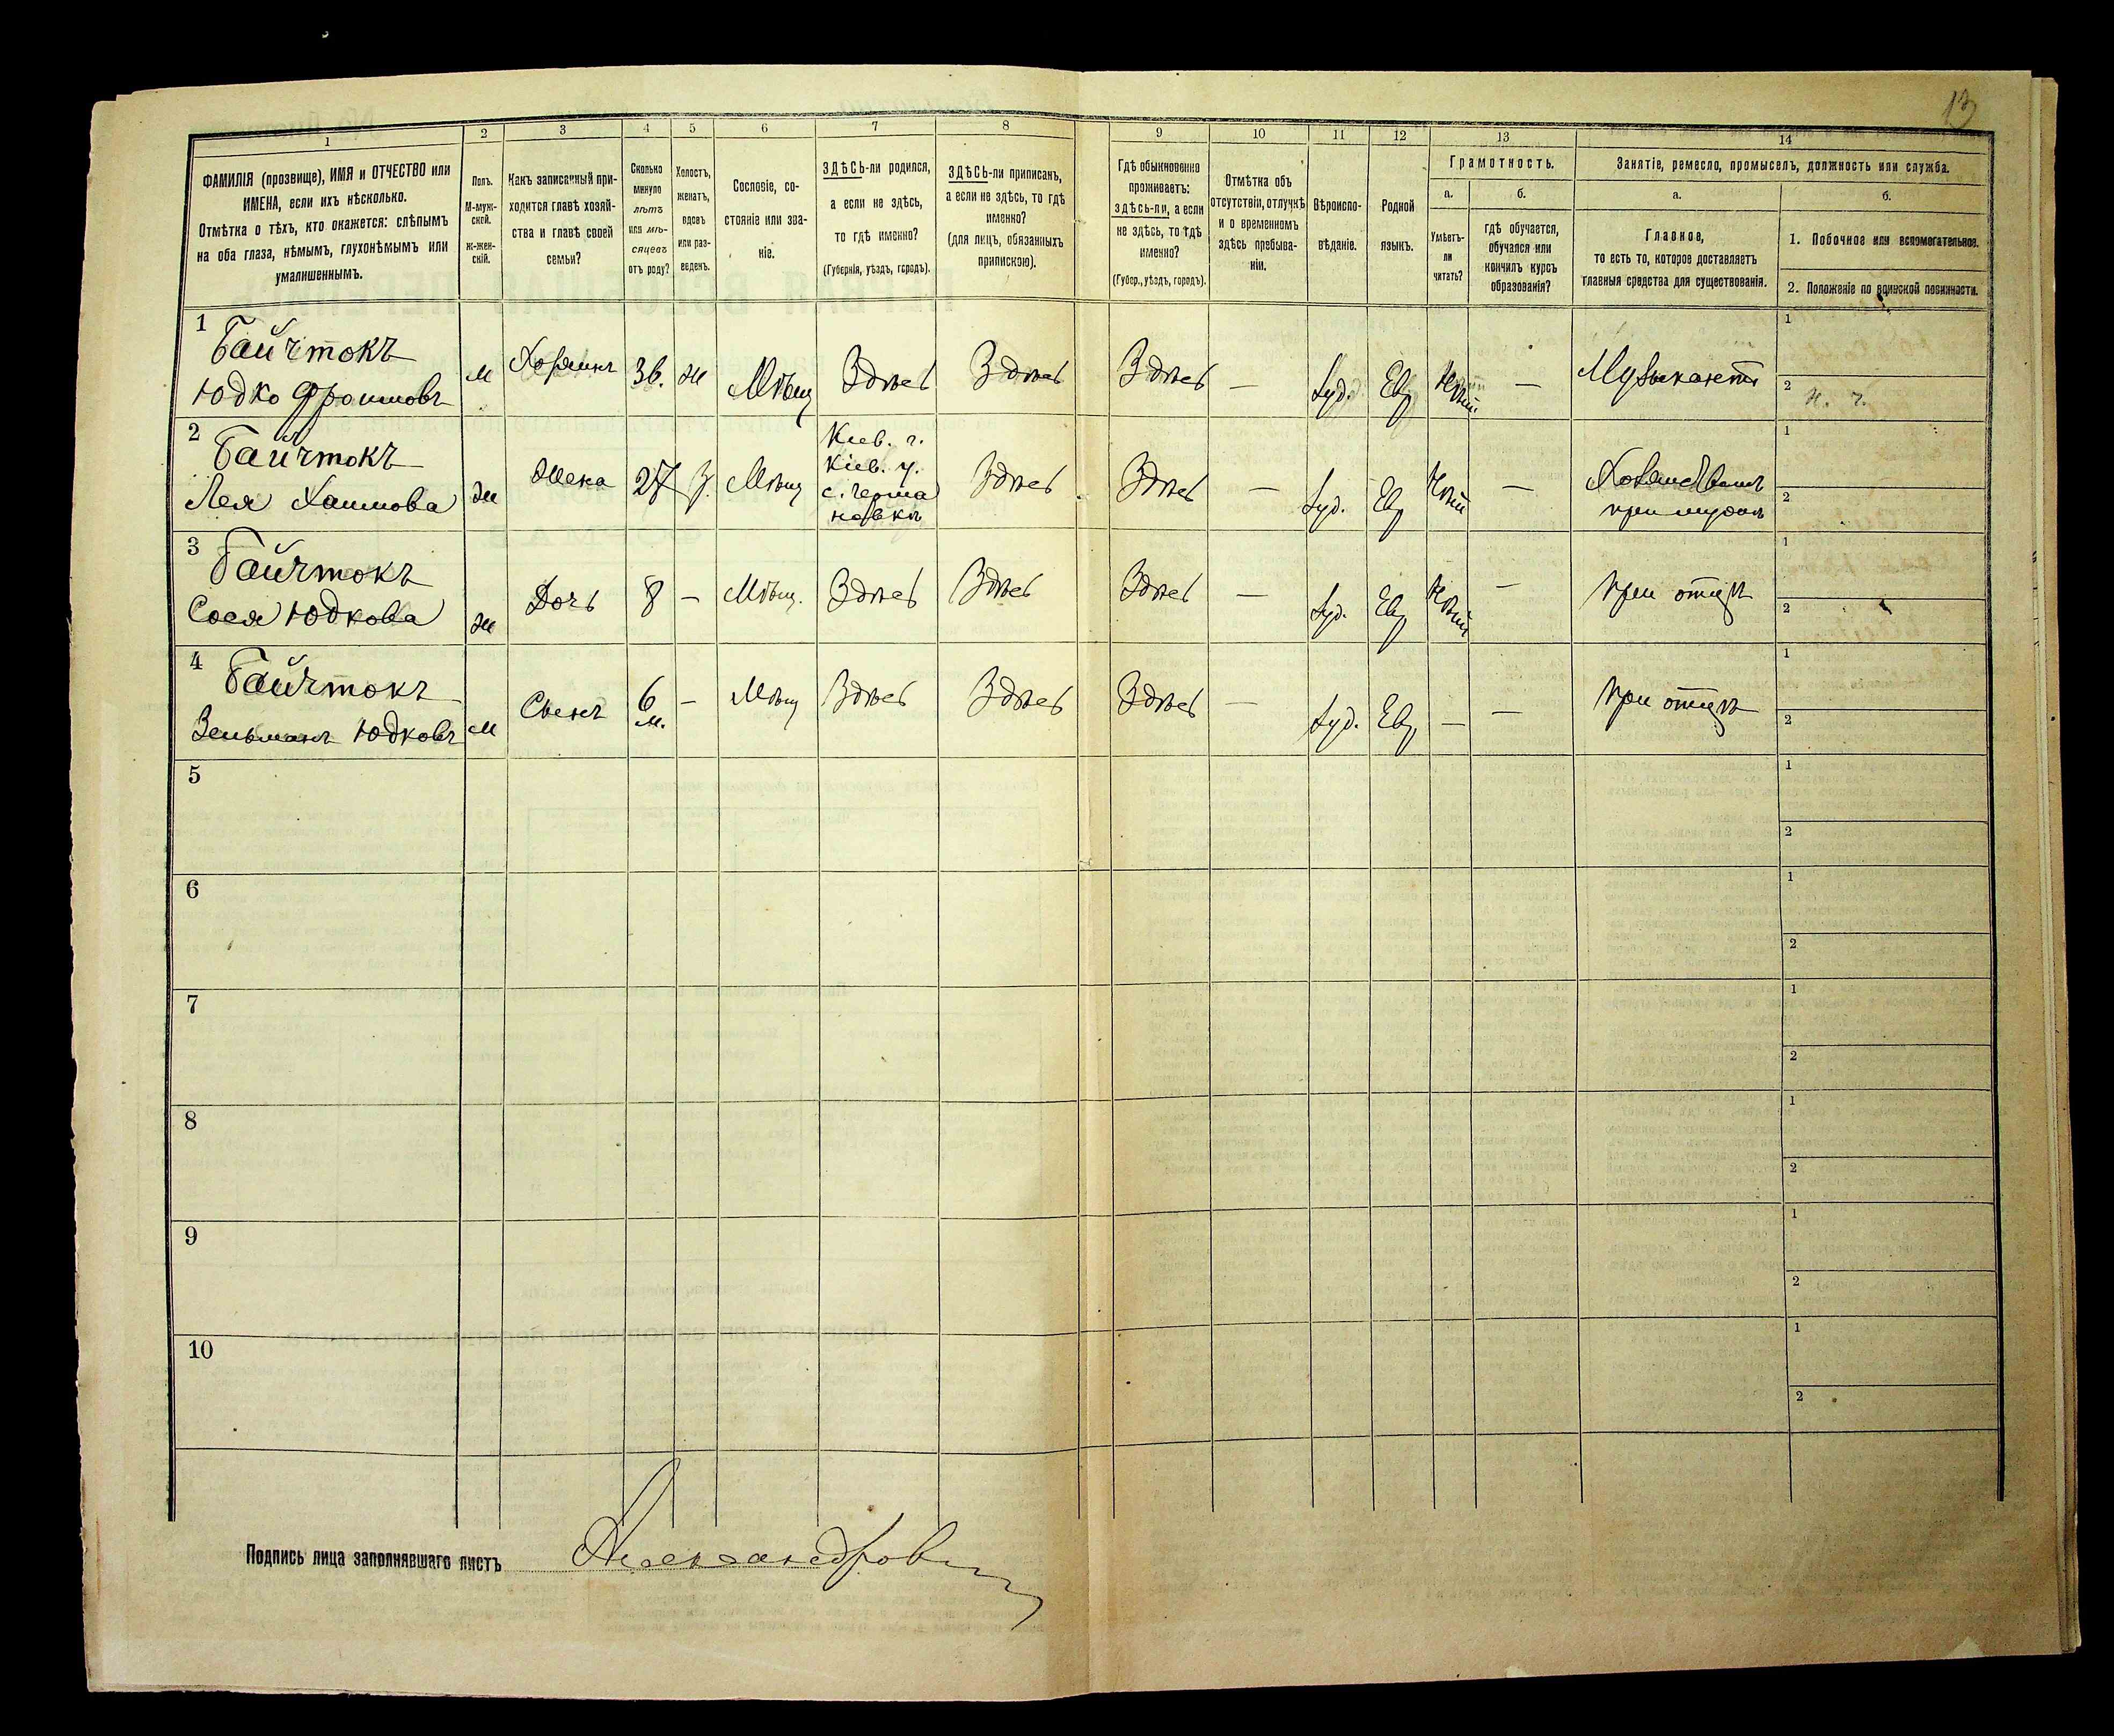 13
1
2
3
4
5
6
7
8
9
10
11
12
13
14
ФАМИЛІЯ (прозвище), ИМЯ и ОТЧЕСТВО или
ИМЕНА, если ихъ нѣсколько.
Отмѣтка о тѣхъ, кто окажется: слѣпымъ
на оба глаза, нѣмымъ, глухонѣмымъ или
умалишеннымъ.
Полъ.
М-муж-
ской.
Ж-жен-
скій.
Какъ записанный при-
ходится главѣ хозяй-
ства и главѣ своей
семьи?
Сколько
минуло
лѣтъ
или мѣ-
сяцевъ
отъ роду?
Холостъ,
женатъ,
вдовъ
или раз-
веденъ.
Сословіе, со-
стояніе или зва-
ніе.
ЗДѢСЬ-ли родился,
а если не здѣсь,
то гдѣ именно?
(Губернія, уѣздъ, городъ).
ЗДѢСЬ-ли приписанъ,
а если не здѣсь, то гдѣ
именно?
(для лицъ, обязанныхъ
припискою).
Гдѣ обыкновенно
проживаетъ:
здѣсь-ли, а если
не здѣсь, то гдѣ
именно?
(Губер., уѣздъ, городъ).
Отмѣтка объ
отсутствіи, отлучкѣ
и о временномъ
здѣсь пребыва-
ніи.
Вѣроиспо-
вѣданіе.
Родной
языкъ.
Грамотность.
а.
Умѣетъ-
ли
читать?
б.
гдѣ обучается,
обучался или
кончилъ курсъ
образованія?
Занятіе, ремесло, промыселъ, должность или служба.
а.
Главное,
то есть то, которое доставляетъ
главныя средства для существованія.
б.
1. Побочное или вспомогательное.
2. Положеніе по воинской повинности.
1
Байчтокъ
Юдко Фроимовъ
м
Хозяинъ
36.
ж
Мѣщ
Здѣсь
Здѣсь
Здѣсь
—
Іуд.
Евр
—
Музыкантъ
1
2
н. ч.
2
Байчтокъ
Лея Хаимова
ж
Жена
27
З.
Мѣщ
Кіев. г.
Кіев. у.
Здѣсь
Здѣсь
—
Іуд.
Евр
—
при мужѣ
1
2
3
Байчтокъ
Сося Юдкова
ж
Дочь
8
—
Мѣщ.
Здѣсь
Здѣсь
Здѣсь
—
Іуд.
Евр
—
при отцѣ
1
2
4
Байчтокъ
Зельманъ Юдковъ
м
Сынъ
6
м.
—
Мѣщ
Здѣсь
Здѣсь
Здѣсь
—
Іуд.
Евр
—
—
при отцѣ
1
2
5
1
2
6
1
2
7
1
2
8
1
2
9
1
2
10
1
2
Подпись лица заполнявшаго листъ